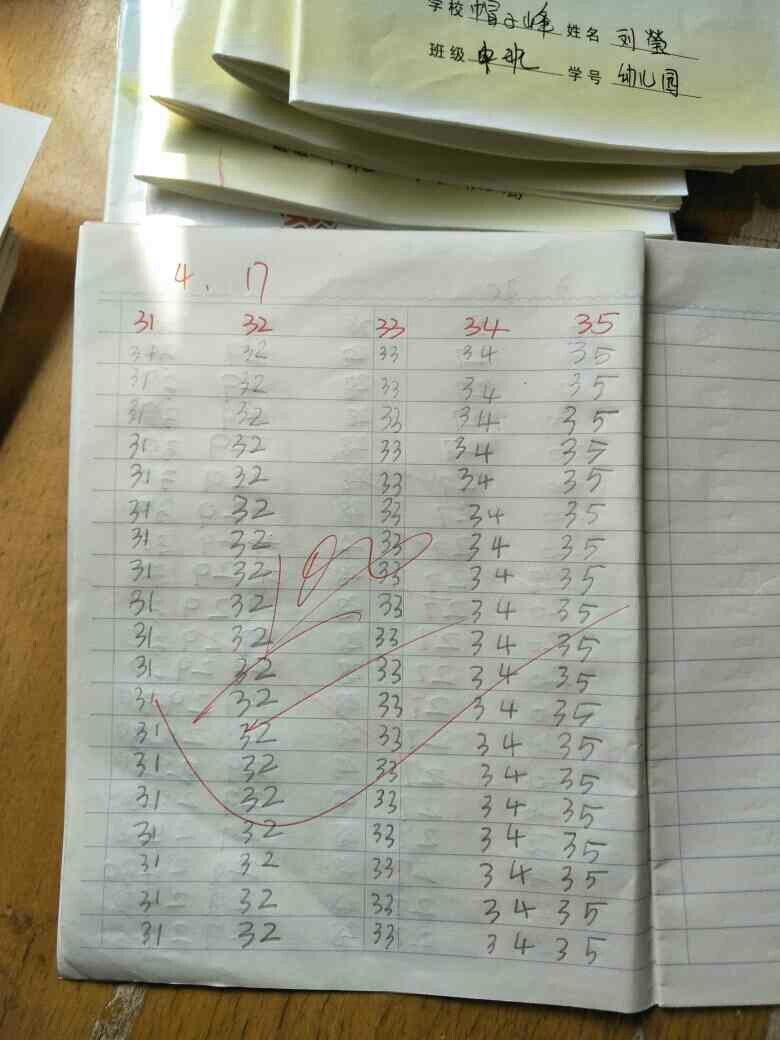 学校 帽子峰 姓名 刘莹
班级 中班 学号 幼儿园
4. 17
31 32 33 34 35
31 32 33 34 35
31 32 33 34 35
31 32 33 34 35
31 32 33 34 35
31 32 33 34 35
31 32 33 34 35
31 32 33 34 35
31 32 33 34 35
31 32 33 34 35
31 32 33 34 35
31 32 33 34 35
31 32 33 34 35
31 32 33 34 35
31 32 33 34 35
31 32 33 34 35
31 32 33 34 35
31 32 33 34 35
31 32 33 34 35
31 32 33 34 35
100